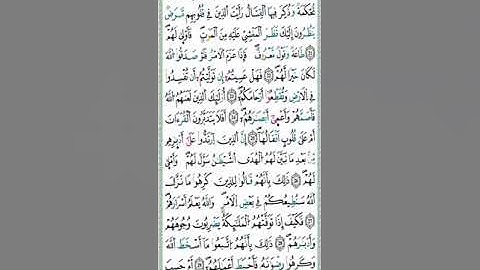 مُّحْكَمَةٌ وَذُكِرَ فِيهَا ٱلْقِتَالُ رَأَيْتَ ٱلَّذِينَ فِى قُلُوبِهِم مَّرَضٌ
يَنظُرُونَ إِلَيْكَ نَظَرَ ٱلْمَغْشِىِّ عَلَيْهِ مِنَ ٱلْمَوْتِ فَأَوْلَىٰ لَهُمْ
٢٠ طَاعَةٌ وَقَوْلٌ مَّعْرُوفٌ فَإِذَا عَزَمَ ٱلْأَمْرُ فَلَوْ صَدَقُوا۟ ٱللَّهَ
لَكَانَ خَيْرًا لَّهُمْ ٢١ فَهَلْ عَسَيْتُمْ إِن تَوَلَّيْتُمْ أَن تُفْسِدُوا۟
فِى ٱلْأَرْضِ وَتُقَطِّعُوٓا۟ أَرْحَامَكُمْ ٢٢ أُو۟لَٰٓئِكَ ٱلَّذِينَ لَعَنَهُمُ ٱللَّهُ
فَأَصَمَّهُمْ وَأَعْمَىٰٓ أَبْصَٰرَهُمْ ٢٣ أَفَلَا يَتَدَبَّرُونَ ٱلْقُرْءَانَ
أَمْ عَلَىٰ قُلُوبٍ أَقْفَالُهَآ ٢٤ إِنَّ ٱلَّذِينَ ٱرْتَدُّوا۟ عَلَىٰٓ أَدْبَٰرِهِم
مِّنۢ بَعْدِ مَا تَبَيَّنَ لَهُمُ ٱلْهُدَى ٱلشَّيْطَٰنُ سَوَّلَ لَهُمْ وَأَمْلَىٰ
لَهُمْ ٢٥ ذَٰلِكَ بِأَنَّهُمْ قَالُوا۟ لِلَّذِينَ كَرِهُوا۟ مَا نَزَّلَ
ٱللَّهُ سَنُطِيعُكُمْ فِى بَعْضِ ٱلْأَمْرِ وَٱللَّهُ يَعْلَمُ إِسْرَارَهُمْ
٢٦ فَكَيْفَ إِذَا تَوَفَّتْهُمُ ٱلْمَلَٰٓئِكَةُ يَضْرِبُونَ وُجُوهَهُمْ
وَأَدْبَٰرَهُمْ ٢٧ ذَٰلِكَ بِأَنَّهُمُ ٱتَّبَعُوا۟ مَآ أَسْخَطَ ٱللَّهَ
وَكَرِهُوا۟ رِضْوَٰنَهُۥ فَأَحْبَطَ أَعْمَٰلَهُمْ ٢٨ أَمْ حَسِبَ